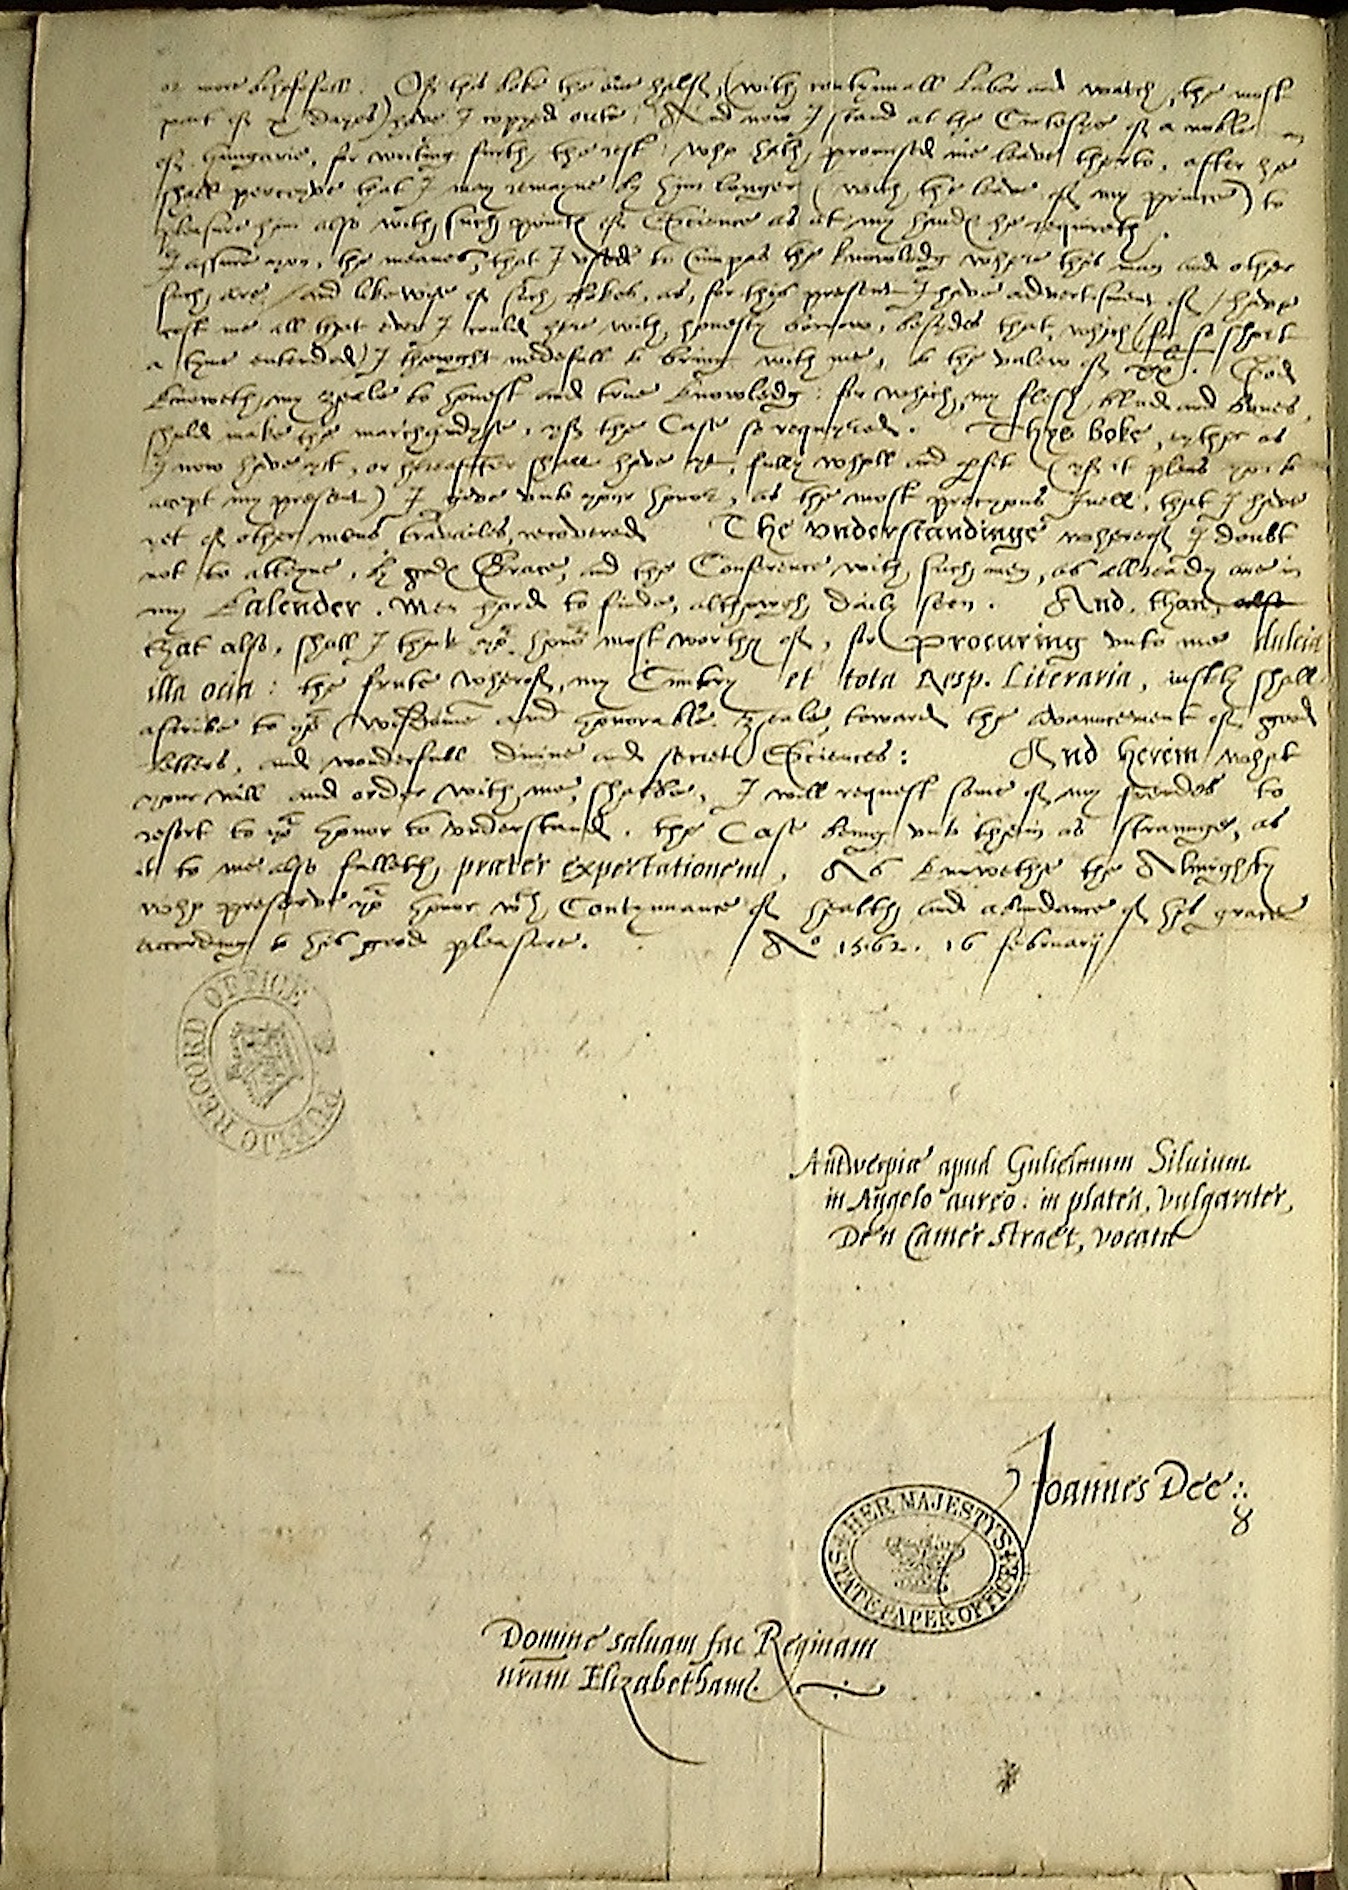 or more behofefull. Of this boke the one halfe (with contynuall Labor and watch, the most
part of x dayes) have I copyed oute. And now I stand at the Curtesye of a noble man
of Hungarie, for writing furth the rest: who hath promised me leave therto, after he
shall perceyve that I may remayne by him longer (with the leave of my prince) to
pleasure him also with such pointes of Science as at my handes he requireth.
I assure you, the meanes, that I used to cumpas the knowledg where this man and other
such are, and likewise of such bokes, as, for this present I have advertisment of, have
cost me all that ever I could here with honesty borow, besydes that which (for so short
a tyme entended) I thowght nedefull to bring with me, to the valew of xx li. God
knoweth my zeale to honest and true knowledg: for which, my flesh, blud and bones,
shuld make the marchandyse, yf the Case so requyred. Thys boke, eyther as
I now have yt, or hereafter shall have yt, fully whole and perfit, (yf it pleas you to
accept my present) I geve unto your honor, as the most precyous Juell, that I have
yet of other mens travailes, recovered. The vnderstandinge wherof, I doubt
not to atteyne, by gods Grace, and the Conference with such men, as allready are in
my Kalender. Men hard to finde, althowgh daily seen. And, than, also
that also, shall I think yor honor most worthy of, for procuring unto me dulcia
illa ocia: the frute wherof, my Cuntry et tota Resp. Literaria, justly shall
ascribe to yor wisdome and honorable zeale, toward the avauncement of good
letters, and wonderfull divine and secret Sciences: And herein what
your will and order with me, shalbe, I will request some of my frendes to
resort to yor honor to vnderstand. the Case being unto them as straunge, as
it to me also falleth, præter expectationem. As knowethe the Almighty
who preserve yor honor wth Contynuance of health and abundance of his grace
according to his good pleasure. Ao 1562. 16 februarij
PUBLIC RECORD OFFICE
Antwerpiæ apud Gulielmum Siluium
in Angelo aureo: in platea, vulgariter,
De'n Camer straet, vocata
Joannes Dee:
HER MAJESTY'S
STATE PAPER OFFICE
Domine saluam fac Reginam
nram Elizabetham.